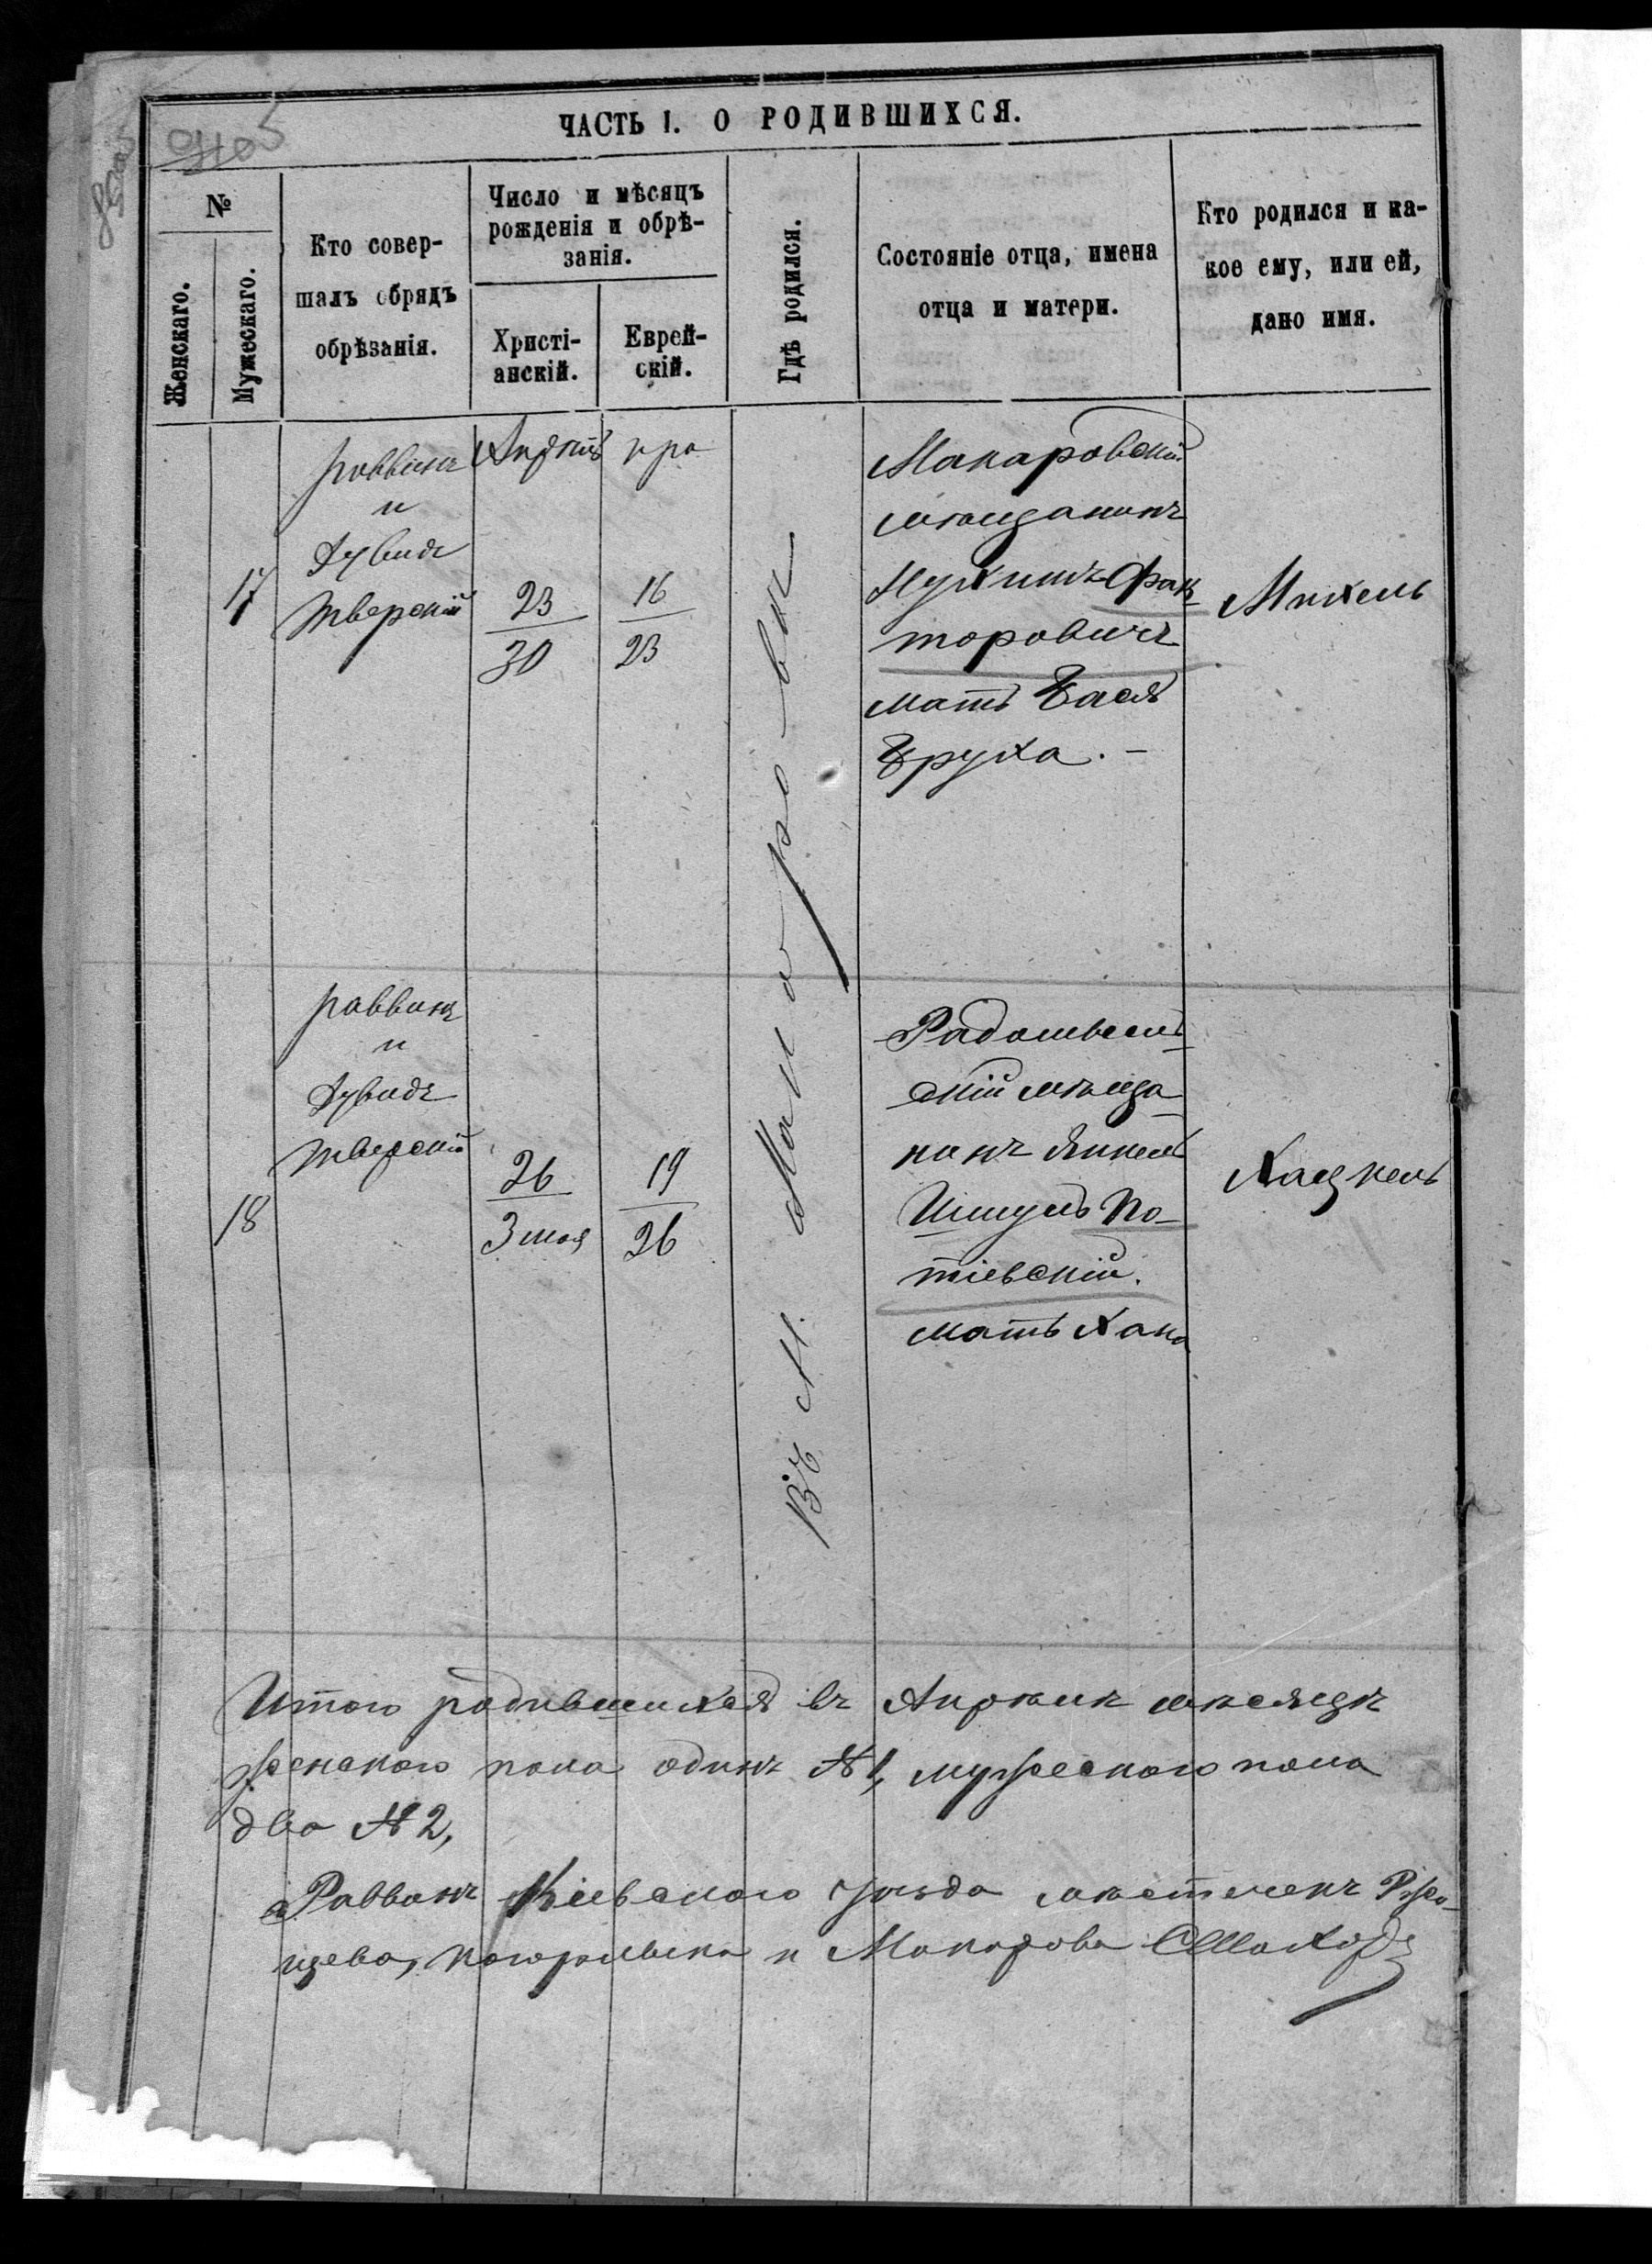 ЧАСТЬ I. О РОДИВШИХСЯ.
№
Женскаго.
Мужескаго.
Кто совер-
шалъ обрядъ
обрѣзанія.
Число и мѣсяцъ
рожденія и обрѣ-
занія.
Христі-
анскій.
Еврей-
скій.
Гдѣ родился.
Состояніе отца, имена
отца и матери.
Кто родился и ка-
кое ему, или ей,
дано имя.
17
раввинъ
и
Дувидъ
Тверскій
Апрѣль
23
30
16
23
Въ М. Макаровѣ
Макаровскій
мѣщанинъ
Фак-
торовичъ
мать Бася
Бруха. —
Михель
18
раввинъ
и
Дувидъ
Тверскій
26
3 мая
19
26
Радомысль-
скій мѣща-
нинъ Янкель
Шмуль По-
тіевскій.
мать Хана
Хацкель
Итого родившихся въ Апрѣлѣ мѣсяцѣ
женскаго пола одинъ № 1, мужескаго пола
два № 2,
Раввинъ Кіевскаго уѣзда мѣстечекъ Ржи-
щева, и Макарова